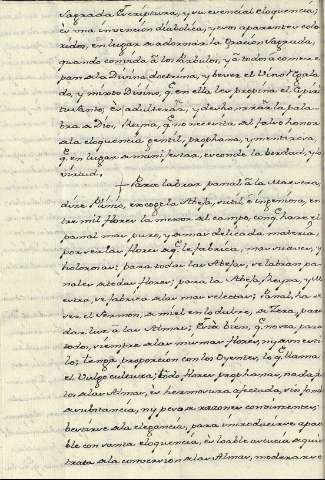 Sagrada Escriptura, y su evencial Eloquencia;
es una invencion diabolica, y con aparentes colo-
ridos, en lugar de adornar la Oracion Sagrada,
quando convida à los Párbulos, y à todos à comer el
pan de la Divina doctrina, y bever el Vino Regala-
do, y mixto Divino, q.e en ella les propina el Espi-
ritu Santo, es adulterar, y deshonrrar la pala-
bra de Dios, Reyna, q.e no necesita del falso honor
de la eloquencia gentil, prophana, y mentirosa,
q.e en lugar de manifestar, esconde la verdad, y la
virtud.
Para labrar panal à la Maestra,
dize Plinio, escoge la Abeja, sutil è ingeniosa, en-
tre mil flores la mejor del campo, con q.e haze el
panal mas puro, y de mas delicada materia,
por ser las flores de q.e le fabrica, mas suaves, y
holorosas; para todas las Abejas, se labran pa-
nales de todas flores; para la Abeja Reyna, y Ma-
estra, se fabrica de las mas selectas; Panal, ha de
ser el Sermon, de miel en lo dulze, de Zera, para
dar luz à las Almas; Està bien, q.e no sea para
todos, siempre de las mismas flores, ny de un esti-
lo; tenga proporcion con los Oyentes, lo q.e llama
el Vulgo cultura; todo flores prophanas, nada, fru-
tos de las Almas, es hermosura afectada, sin fondo
de substancia, ny peso de razones convinientes;
bestirse de la elegancia, para introducirse apaci-
ble con santa eloquencia, es loable astucia de quien
trata de la conversion de las Almas, moderarse